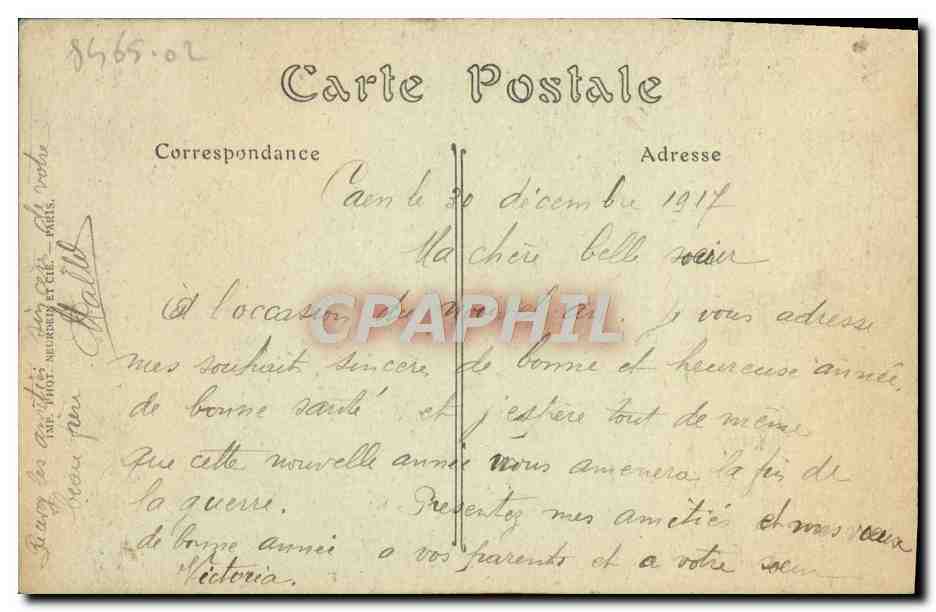 8465.02
Carte Postale
Correspondance
Adresse
Caen le 30 décembre 1917
Ma chère belle soeur
A l'occasion du nouvel an. Je vous adresse
mes souhait sinceres de bonne et heureuse année.
de bonne santé et j'espère tout de même
que cette nouvelle année nous amenera la fin de
la guerre. Presentez mes amitiés et mes vœux
de bonne année a vos parents et a votre soeur
Victoria.
Recevez les amitiés sincères de votre
beau frère
IMP. PHOT. NEURDEIN ET CIE. — PARIS.
CPAPHIL